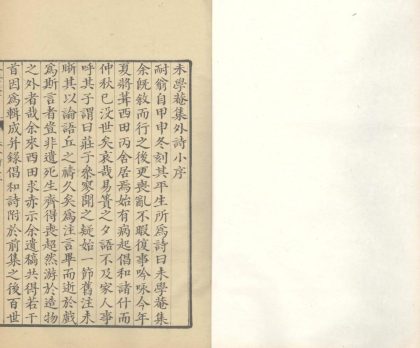 未學庵集外詩小序
耐翁自甲申冬刻其平生所為詩曰未學庵集
余旣敘而行之後更喪亂不暇復事吟咏今年
夏將葺西田丙舍居焉始有病起倡和諸什而
仲秋已沒世矣哀哉易簀之夕語不及家人事
呼其子謂曰莊子參寥聞之疑始一節舊注未
晰其以論語丘之禱久矣為注言畢而逝於戲
為斯言者豈非遺死生齊得喪超然游於造物
之外者哉余來西田求赤示余遺稿共得若干
首因為輯成并錄倡和詩附於前集之後百世